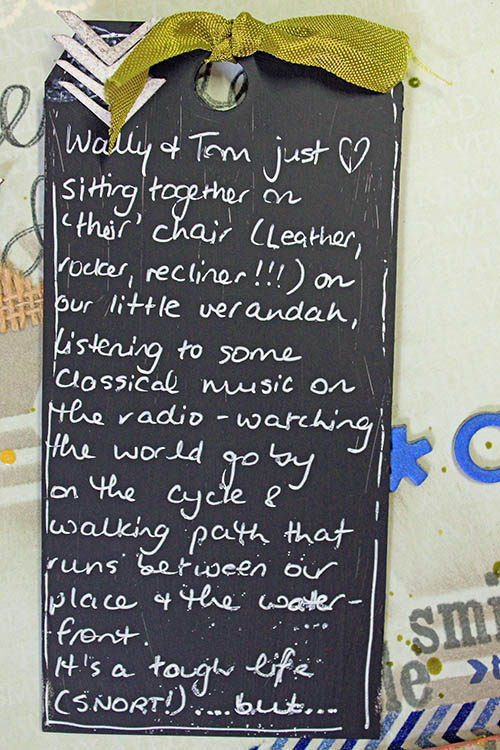 Wally & Tom just ♡
sitting together on
'their' chair (Leather,
rocker, recliner!!!) on
our little verandah,
listening to some
classical music on
the radio - watching
the world go by
on the cycle &
walking path that
runs between our
place & the water-
front.
It's a tough life
(SNORT!)....but....
smi